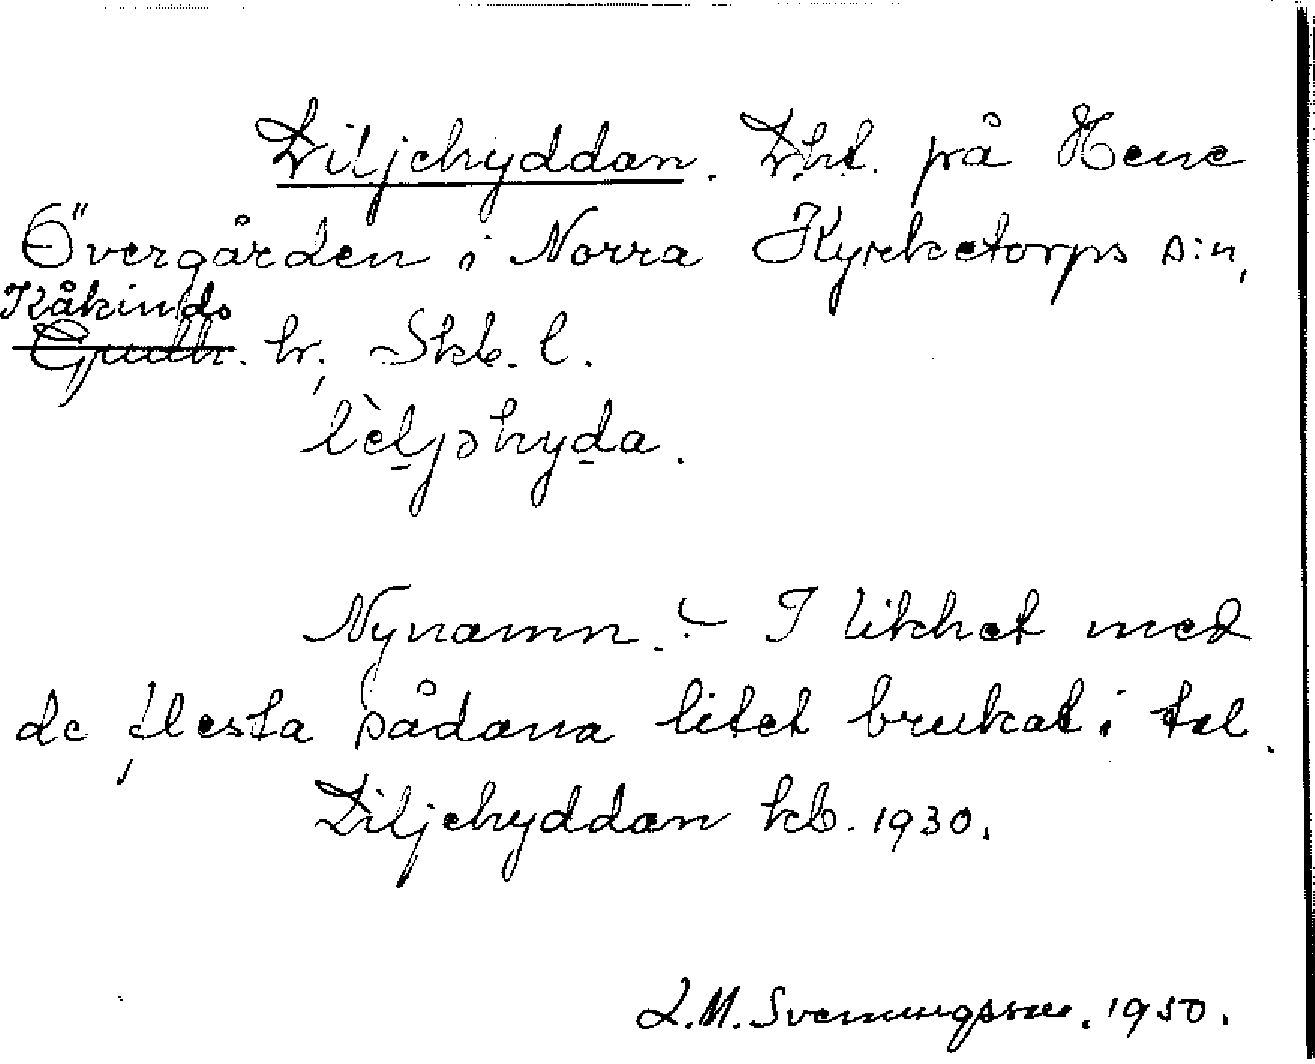 Liljehyddan. Lht. på Hene
Övergården i Norra Kyrketorps s:n,
Kåkinds
Gudh. hr; Skb. l.
lèljəhyda.
Nynamn. – I likhet med
de flesta sådana litet brukat i tal.
Liljehyddan kb. 1930.
L.M. Svenungsson. 1950.